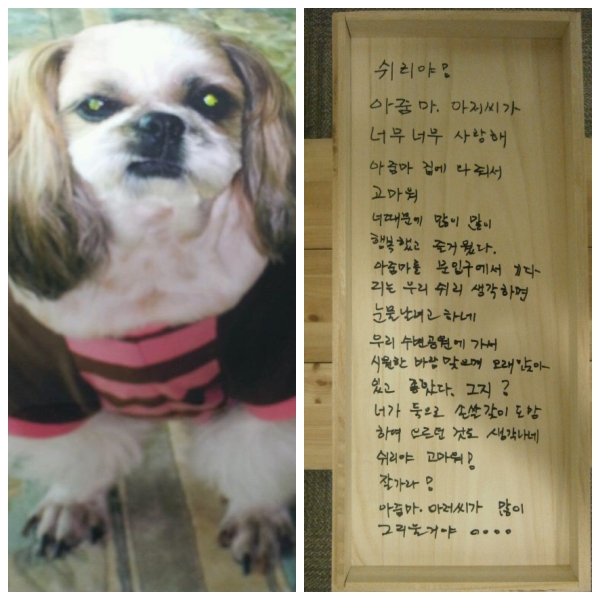 쉬리야!
아줌마. 아저씨가
너무 너무 사랑해
아줌마 집에 와줘서
고마워
너때문에 많이 많이
행복했고 즐거웠다.
아줌마를 문입구에서 기다
리는 우리 쉬리 생각하면
눈물날려고 하네
우리 수변공원에 가서
시원한 바람 맞으며 오래 앉아
있고 좋았다. 그지?
너가 등으로 손쓸같이 도망
하며 으르던 것도 생각나네
쉬리야 고마워!
잘가라!
아줌마. 아저씨가 많이
그리울거야 ....